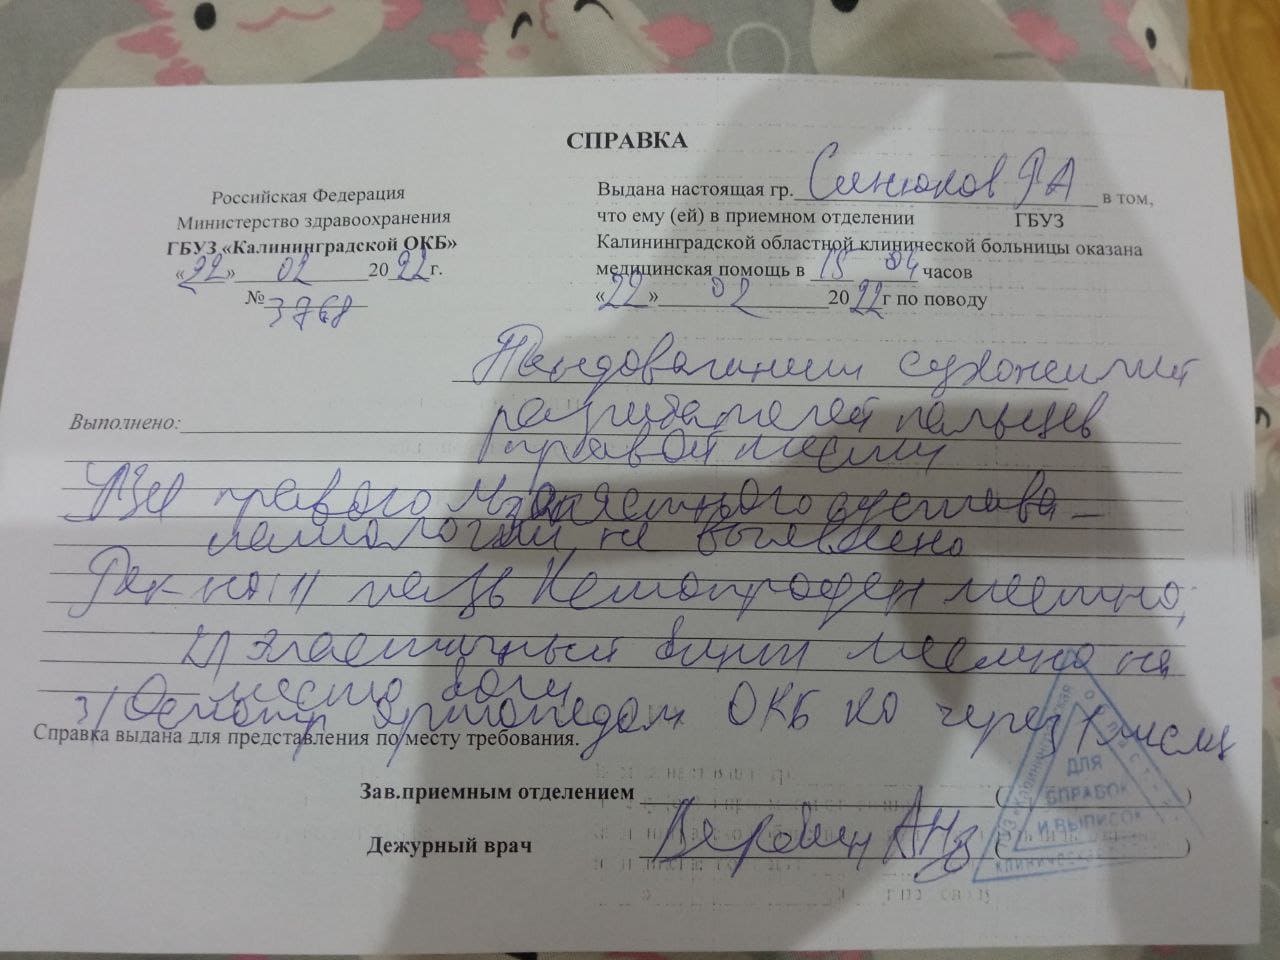 СПРАВКА
Российская Федерация
Министерство здравоохранения
ГБУЗ «Калининградской ОКБ»
«22» 02 2022г.
№ 3768
Выдана настоящая гр. Синюков РА в том,
что ему (ей) в приемном отделении ГБУЗ
Калининградской областной клинической больницы оказана
медицинская помощь в 15 04 часов
«22» 02 2022г по поводу
Тендовагинит сухожилий
Выполнено: разгибателей пальцев
правой кисти
правого сустава –
патологии не выявлено
Рек-но: 1) гель Кетопрофен местно,
2) эластичный бинт местно на
место боли
3) Осмотр ортопедом ОКБ КО через 1 месяц
Справка выдана для представления по месту требования.
Зав.приемным отделением ( )
Дежурный врач ( )
ДЛЯ
СПРАВОК
И ВЫПИСОК